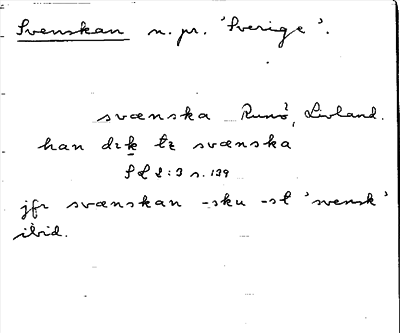 Svenskan n. pr. 'Sverige'.
svænska Runö, Livland.
han drk tz svænska
S L 2:3 s. 139
jfr svænskan -sku -st 'svensk'
ibid.